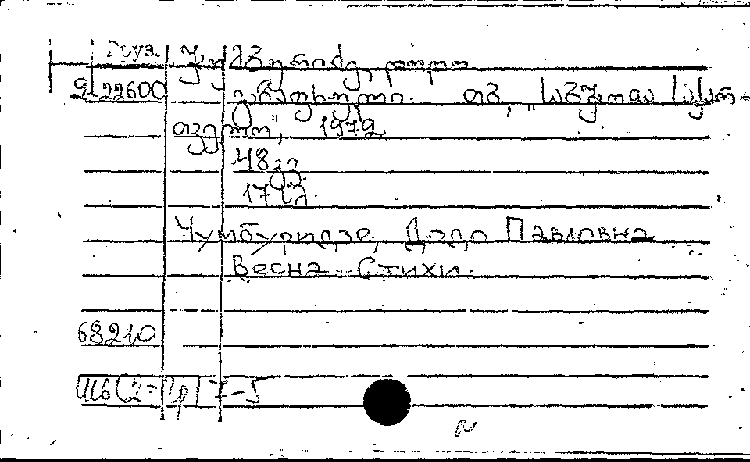 Груз.
ჭუმბურიძე, დოდო
9122600 გაზაფხული. თბ., „საბჭოთა საქარ-
თველო", 1979
48 გვ.
Чумбуридзе, Додо Павловна
Весна. Стихи.
68210